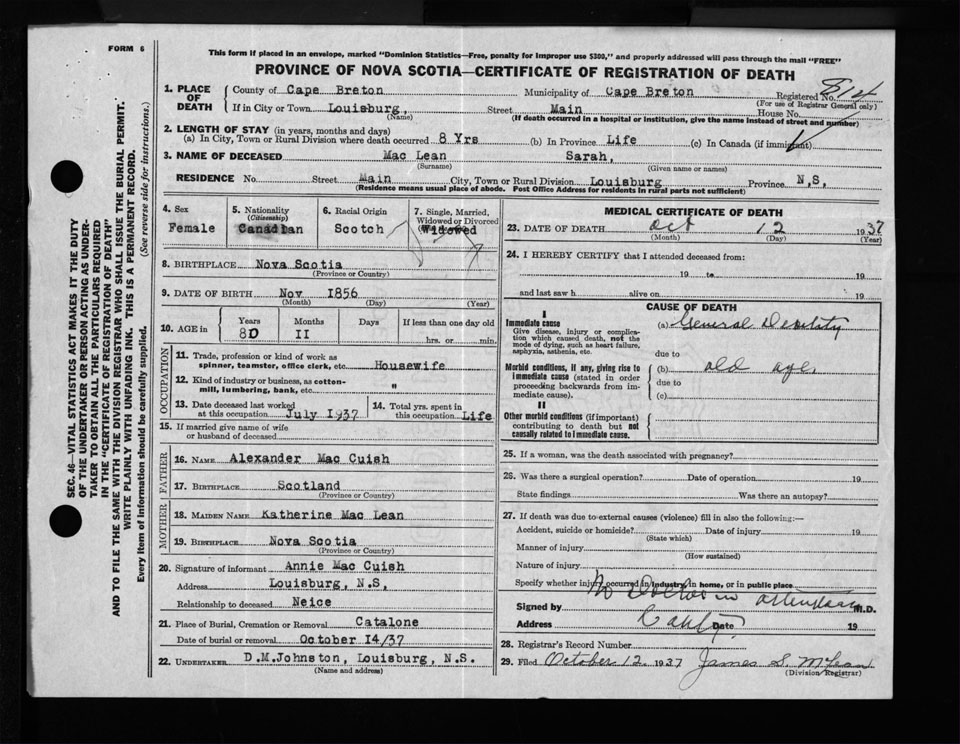 FORM 6
This form if placed in an envelope, marked "Dominion Statistics—Free, penalty for improper use $300," and properly addressed will pass through the mail "FREE"
PROVINCE OF NOVA SCOTIA—CERTIFICATE OF REGISTRATION OF DEATH
SEC. 46—VITAL STATISTICS ACT MAKES IT THE DUTY
OF THE UNDERTAKER OR PERSON ACTING AS UNDER-
TAKER TO OBTAIN ALL THE PARTICULARS REQUIRED
IN THE "CERTIFICATE OF REGISTRATION OF DEATH"
AND TO FILE THE SAME WITH THE DIVISION REGISTRAR WHO SHALL ISSUE THE BURIAL PERMIT.
WRITE PLAINLY WITH UNFADING INK. THIS IS A PERMANENT RECORD.
Every item of information should be carefully supplied. (See reverse side for instructions.)
1. PLACE OF DEATH
County of Cape Breton Municipality of Cape Breton Registered No. 814
(For use of Registrar General only)
If in City or Town Louisburg, Street Main House No.
(Name) (If death occurred in a hospital or institution, give the name instead of street and number)
2. LENGTH OF STAY (in years, months and days)
(a) In City, Town or Rural Division where death occurred 8 Yrs (b) In Province Life (c) In Canada (if immigrant)
3. NAME OF DECEASED Mac Lean Sarah,
(Surname) (Given name or names)
RESIDENCE No. Street Main City, Town or Rural Division Louisburg Province N,S,
(Residence means usual place of abode. Post Office Address for residents in rural parts not sufficient)
4. Sex
Female
5. Nationality
(Citizenship)
Canadian
6. Racial Origin
Scotch
7. Single, Married,
Widowed or Divorced
Widowed
8. BIRTHPLACE Nova Scotia
(Province or Country)
9. DATE OF BIRTH Nov 1856
(Month) (Day) (Year)
10. AGE in
Years Months Days If less than one day old
80 II hrs. or min.
OCCUPATION
11. Trade, profession or kind of work as
spinner, teamster, office clerk, etc. Housewife
12. Kind of industry or business, as cotton-
mill, lumbering, bank, etc. "
13. Date deceased last worked
at this occupation July 1937
14. Total yrs. spent in
this occupation Life
15. If married give name of wife
or husband of deceased
FATHER
16. NAME Alexander Mac Cuish
17. BIRTHPLACE Scotland
(Province or Country)
MOTHER
18. MAIDEN NAME Katherine Mac Lean
19. BIRTHPLACE Nova Scotia
(Province or Country)
20. Signature of informant Annie Mac Cuish
Address Louisburg, N.S,
Relationship to deceased Neice
21. Place of Burial, Cremation or Removal Catalone
Date of burial or removal October 14/37
22. UNDERTAKER D.M.Johnston, Louisburg, N.S.
(Name and address)
MEDICAL CERTIFICATE OF DEATH
23. DATE OF DEATH Oct 12 1937
(Month) (Day) (Year)
24. I HEREBY CERTIFY that I attended deceased from:
19 to 19
and last saw h alive on 19
CAUSE OF DEATH
I
Immediate cause
Give disease, injury or complica-
tion which caused death, not the
mode of dying, such as heart failure,
asphyxia, asthenia, etc.
(a) General Debility
due to
Morbid conditions, if any, giving rise to
immediate cause (stated in order
proceeding backwards from im-
mediate cause).
(b) old age.
due to
(c)
II
Other morbid conditions (if important)
contributing to death but not
causally related to immediate cause.
25. If a woman, was the death associated with pregnancy?
26. Was there a surgical operation? Date of operation 19
State findings Was there an autopsy?
27. If death was due to external causes (violence) fill in also the following:—
Accident, suicide or homicide? Date of injury 19
(State which)
Manner of injury
(How sustained)
Nature of injury
Specify whether injury occurred in industry, in home, or in public place
No Doctor in attendance
Signed by M.D.
Address Date 19
28. Registrar's Record Number
29. Filed October 12 1937 James S. McLean
(Division Registrar)